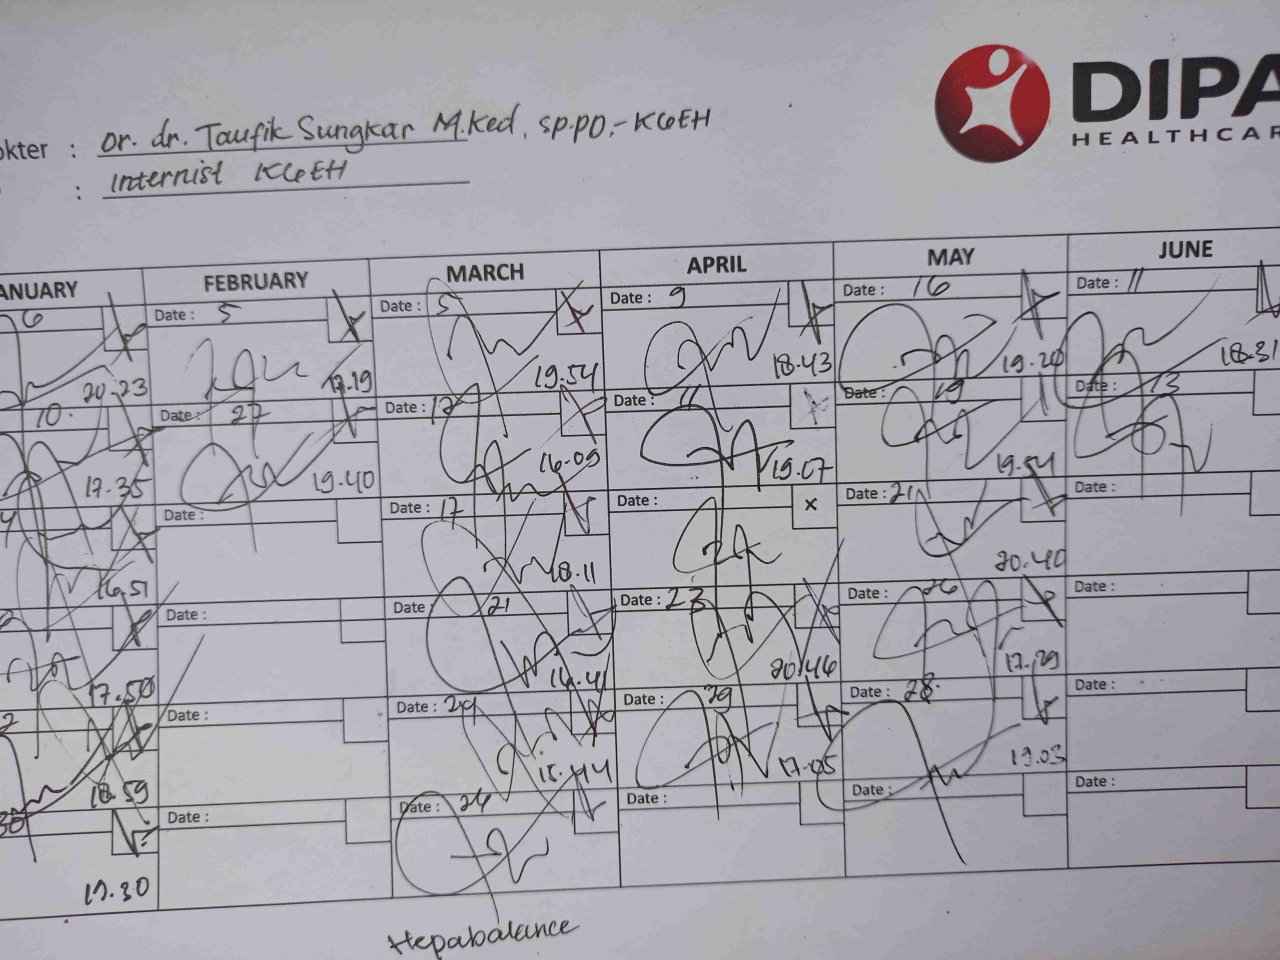 DIPA
HEALTHCAR
okter : Dr. dr. Taufik Sungkar M.Ked, Sp.PD,-KGEH
: Internist KGEH
ANUARY FEBRUARY MARCH APRIL MAY JUNE
6 Date : 5 Date : 5 Date : 9 Date : 16 Date : 11
20.23 17.19 19.54 18.43 19.20 18.31
10 Date : 27 Date : 12 Date : 11 Date : 19 Date : 13
17.35 19.40 16.09 19.07 19.54
Date : Date : 17 Date : x Date : 21 Date :
16.51 18.11 20.40
Date : Date : 21 Date : 23 Date : 26 Date :
17.50 16.41 20.46 17.29
Date : Date : 24 Date : 29 Date : 28 Date :
18.59 15.44 17.05 19.03
30 Date : Date : 26 Date : Date : Date :
19.30
Hepabalance